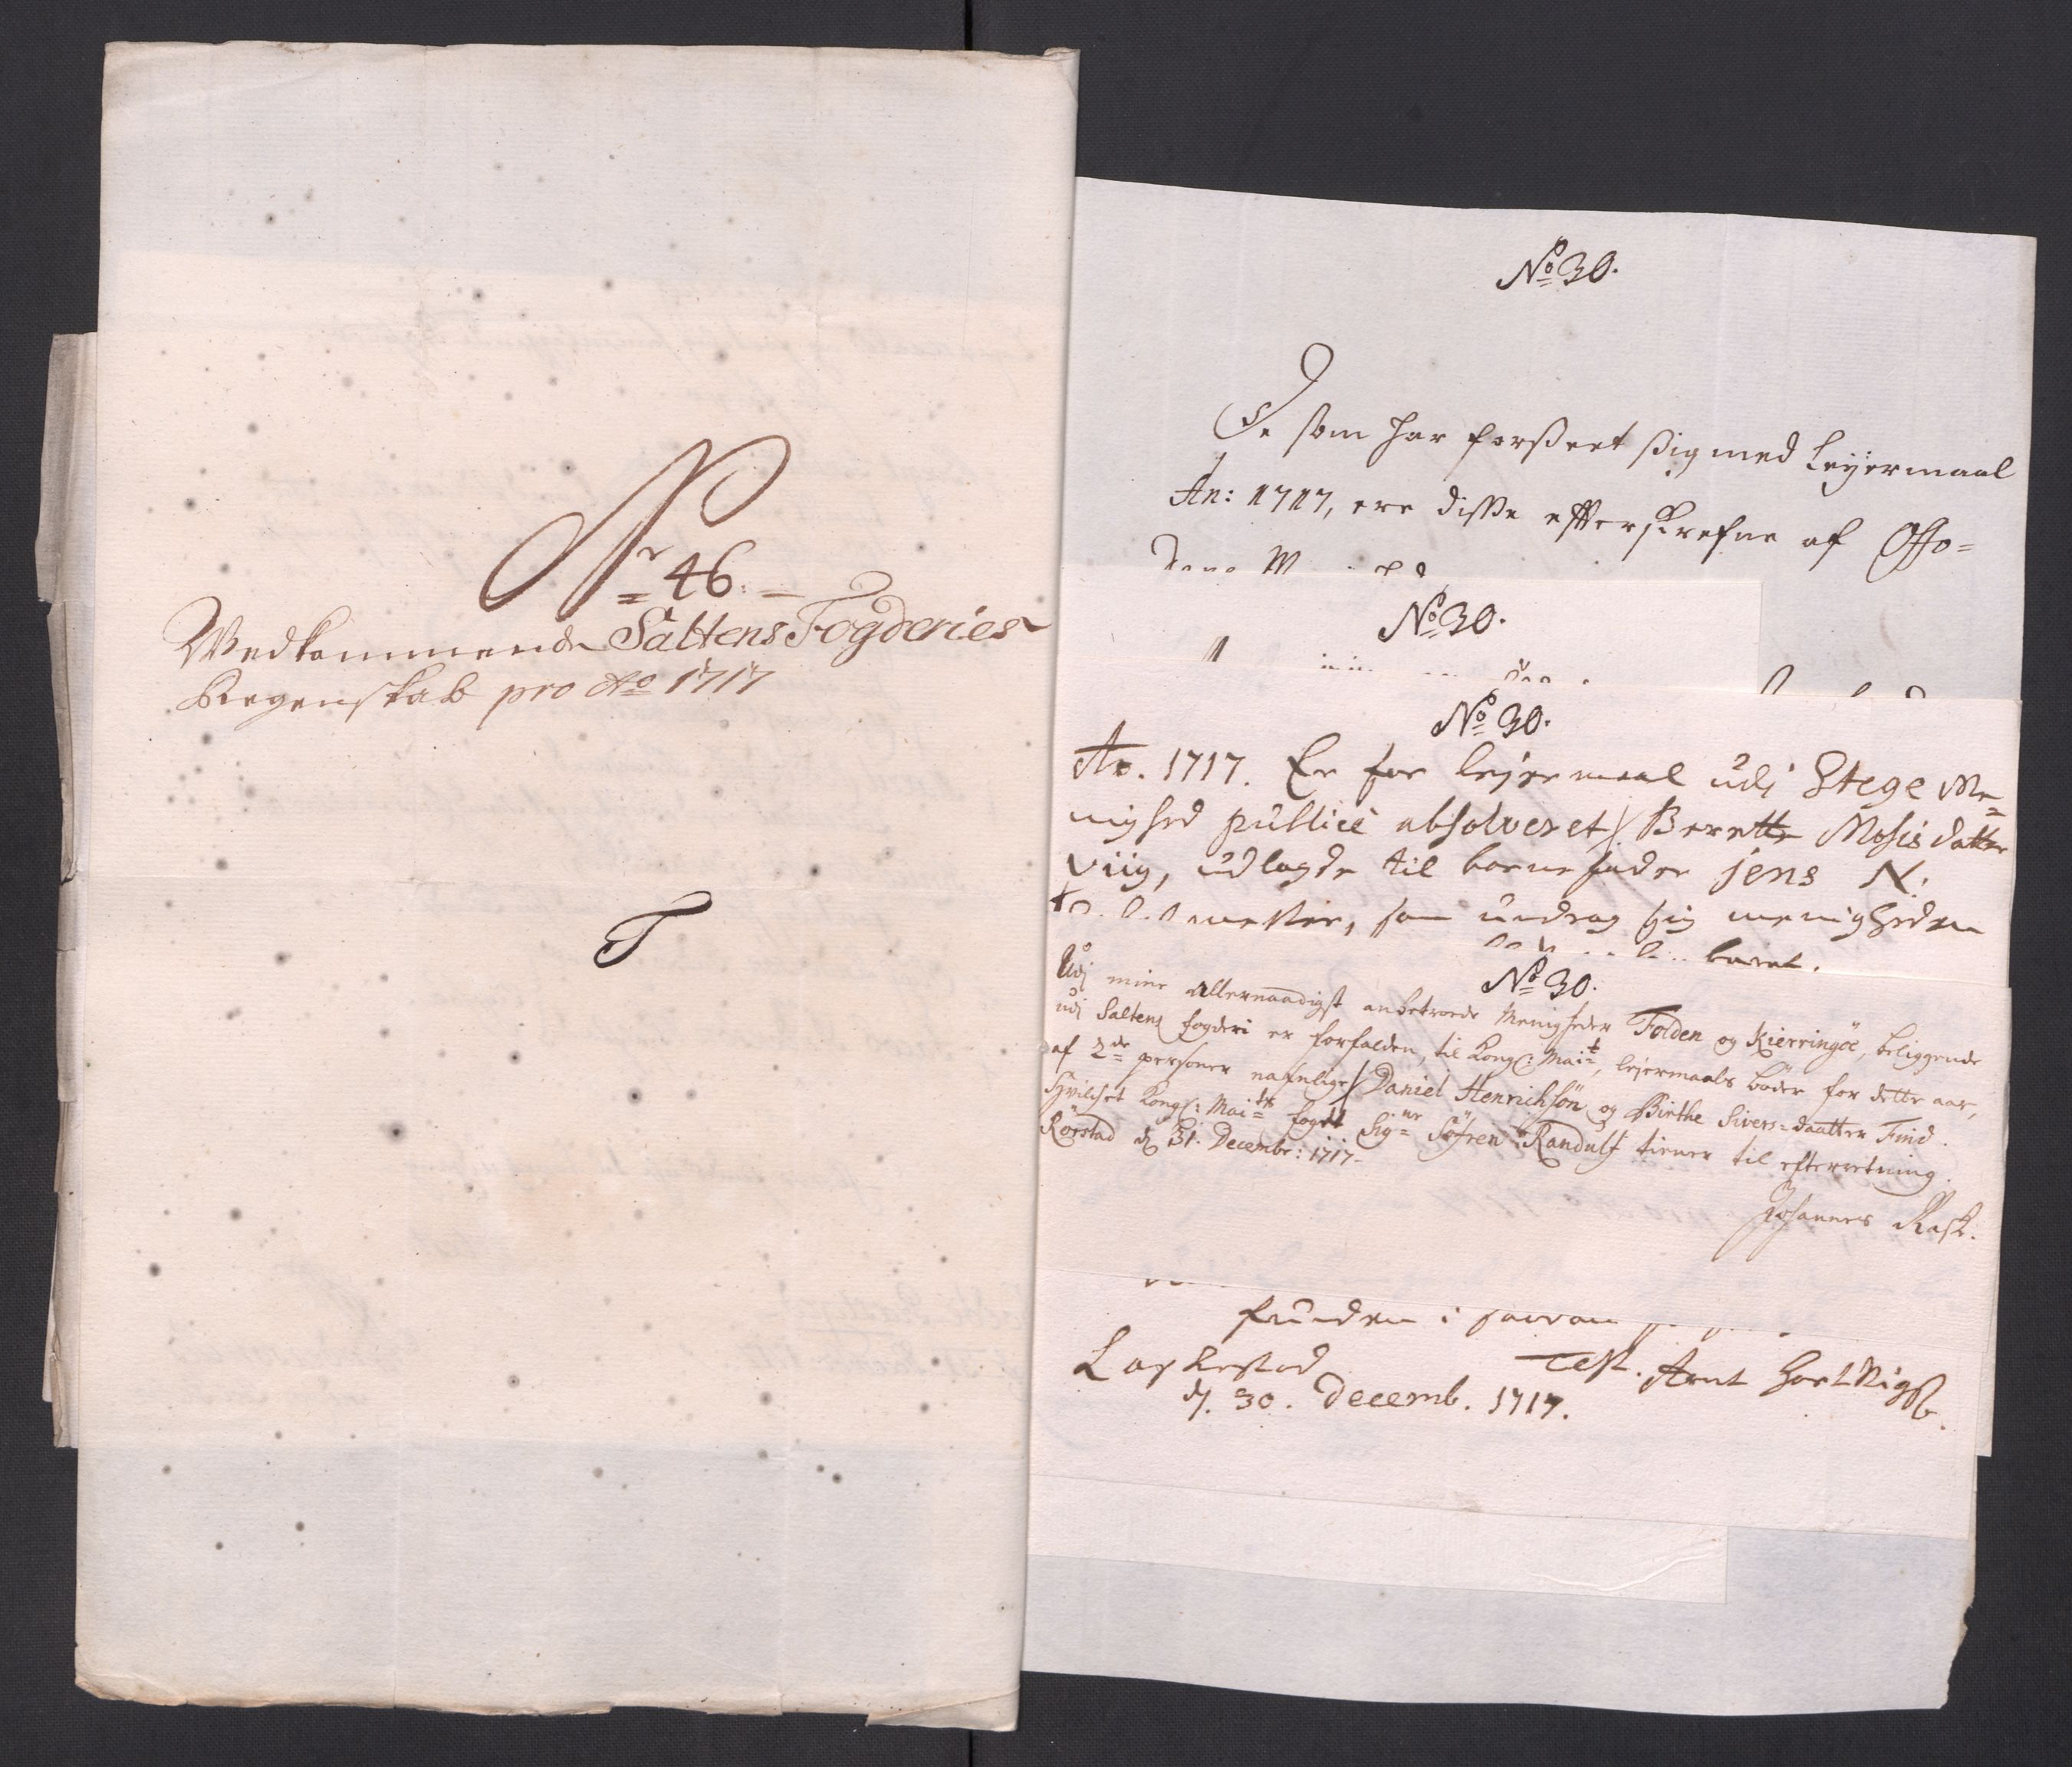 Nr 46.
Wedkommende Saltens Fogderies
Regenskab pro Ao 1717
T
No 30.
De som har forseet sig med Leyermaal
An: 1717, ere disse efferskrefne af Offo=
No 30.
No 30.
Ao. 1717. Er for lejermaal udj Stege Me=
nighed publicè absolveret / Berette Mosis datter
viig, udlagde til barnefader jens N.
som undrog sig menigheden
baret.
No 30.
Udj mine allernaadigst anbetroede Menigheder Folden og Kierringöe, beliggende
udj Saltens fogderi er forfalden, til Kongl: Maitt, lejermaals böder for dette aar,
af 2de personer nafnlige / Daniel Henrichsön og Birthe Sivers=daatter Find.
Hvilchet Kongl: Maitts fogd Signr Söfren Randulf tiener til efterretning.
Rörstad d 31. Decembr: 1717
Johannes Rask.
funden i
Laskestad Test. Arnt Hartvigss.
d. 30. Decemb. 1717.